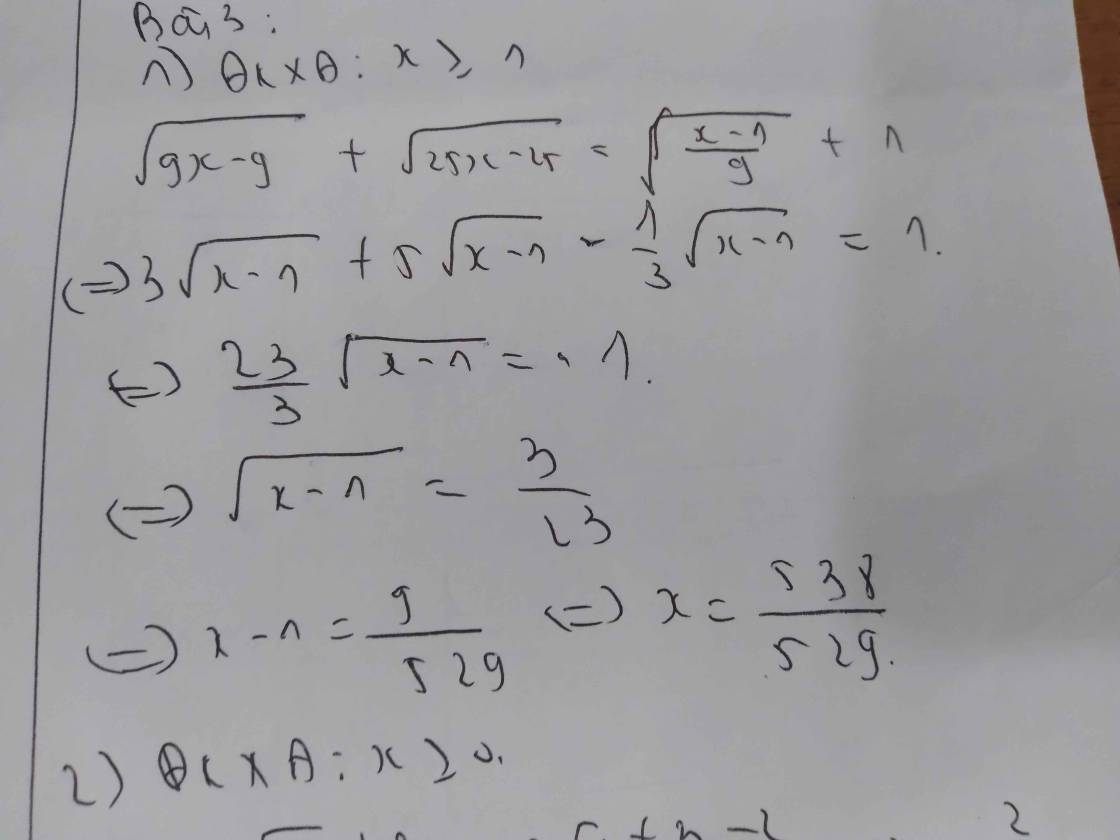 Bài 3:
1) ĐKXĐ: x ≥ 1
√(9x-9) + √(25x-25) = √((x-1)/9) + 1
(=) 3√(x-1) + 5√(x-1) - 1/3 √(x-1) = 1.
(=) 23/3 √(x-1) = 1.
(=) √(x-1) = 3/23
(=) x-1 = 9/529 (=) x = 538/529.
2) ĐKXĐ: x ≥ 0.